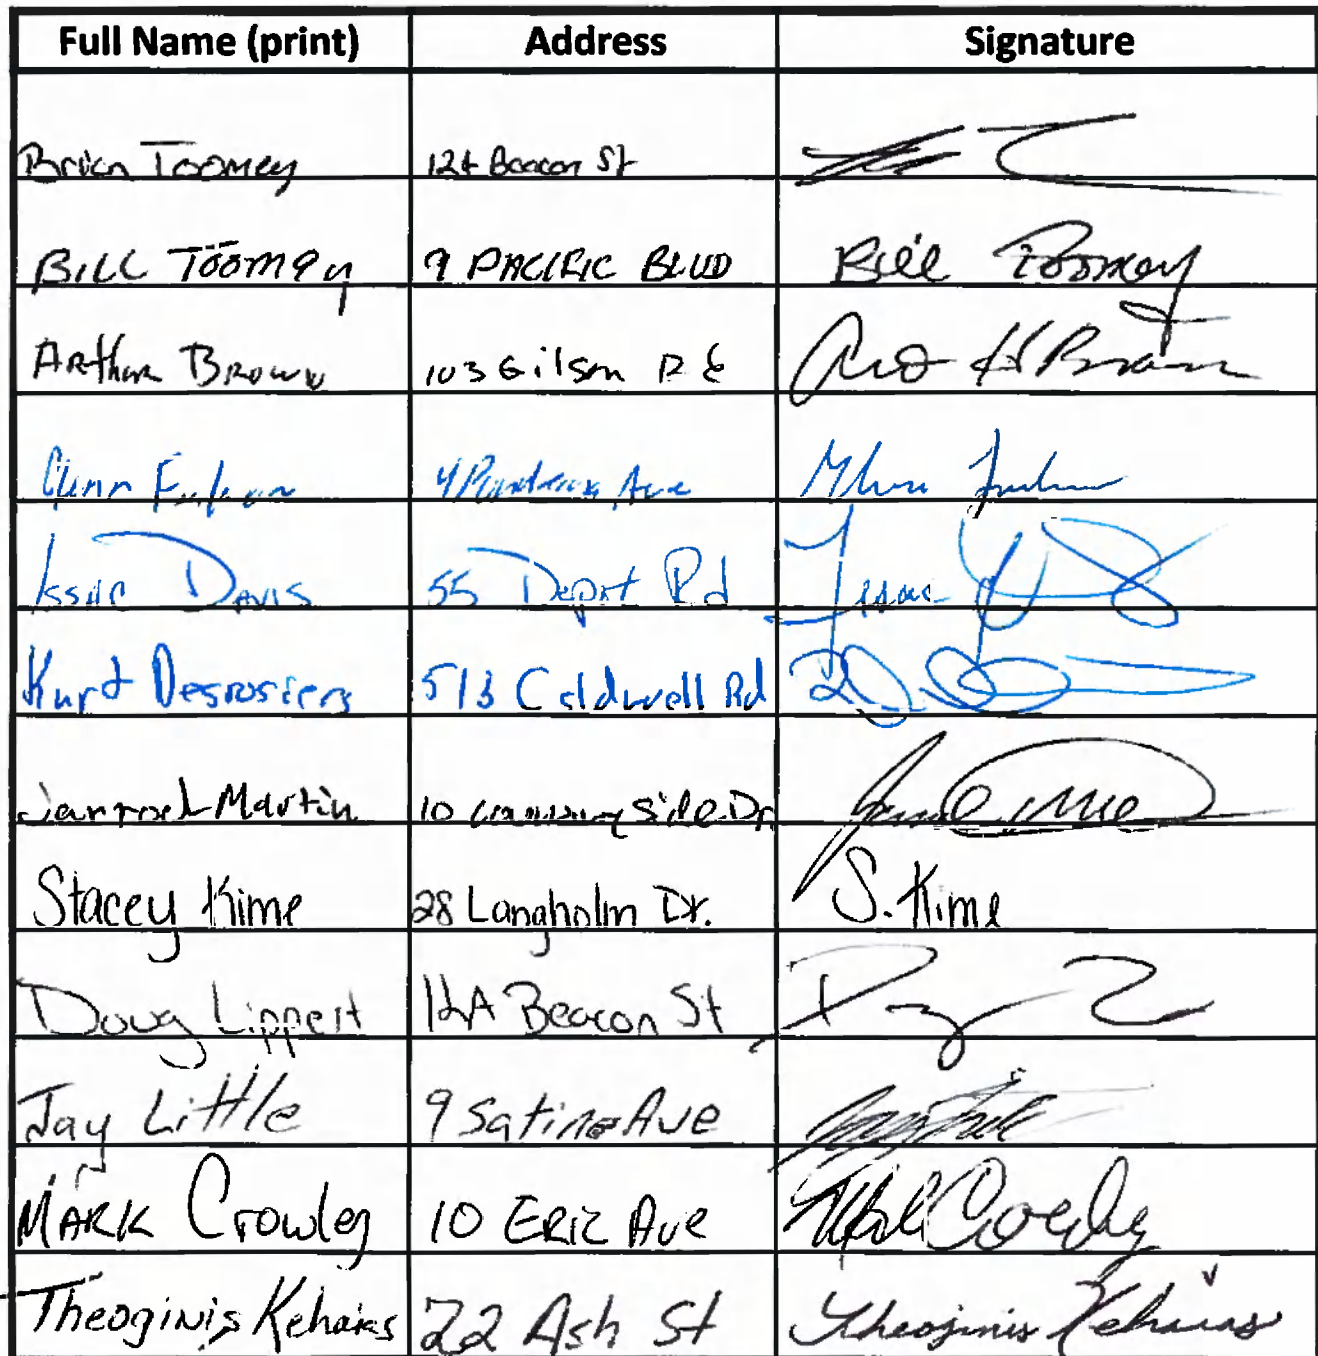 Full Name (print) Address Signature
Brian Toomey 12A Beacon St
BILL Toomey 9 PACIFIC BLVD Bill Toomey
Arthur Brown 103 Gilson Rd Brown
Glenn Ave Glenn
Issac DAVIS 55 Depot Rd Issac
Kurt Desrosiers 513 Caldwell Rd
Martin 10 Side Dr
Stacey Kime 28 Langholm Dr. S. Kime
Doug Lippert 12A Beacon St
Jay Little 9 Satine Ave
MARK Crowley 10 ERIC Ave Mark Crowley
Theoginis Kehaias 22 Ash St Theoginis Kehaias